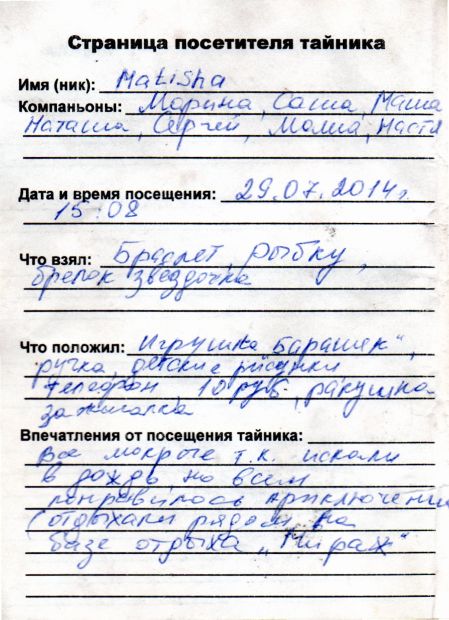 Страница посетителя тайника
Имя (ник): Matisha
Компаньоны: Марина, Саша, Маша
Наташа, Сергей, Настя
Дата и время посещения: 29.07.2014г.
15:08
Что взял: Браслет, рыбку,
брелок звездочка
Что положил: Игрушка "Барашек",
ручка, детские рисунки
телефон, 10 руб, ракушка
зажигалка
Впечатления от посещения тайника:
Все мокрые т.к. искали
в дождь, но всем
понравилось приключение
(отдыхали рядом на
базе отдыха "Мираж"